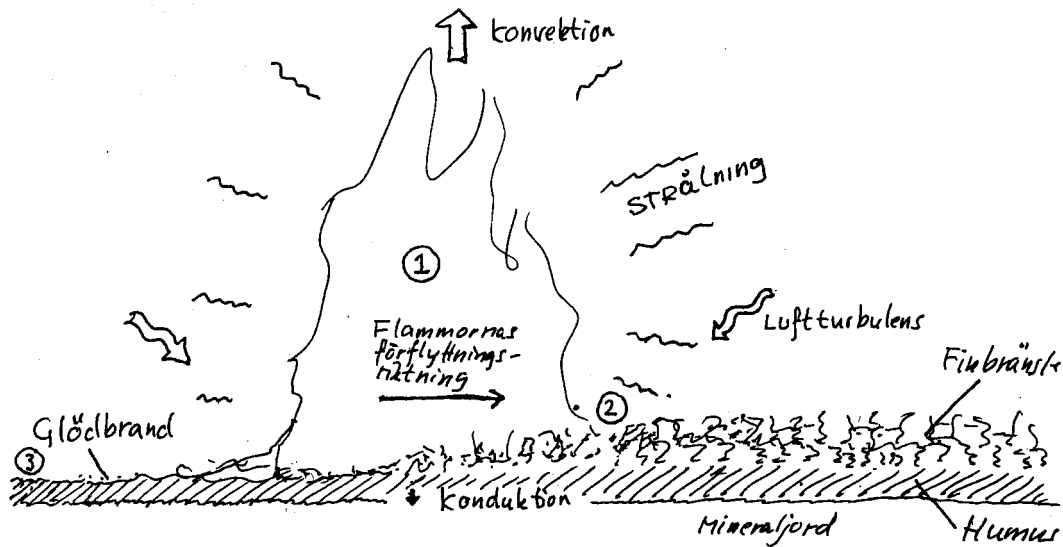 Konvektion
STRÅLNING
1
Flammornas
förflyttnings-
riktning
Luftturbulens
Finbränsle
2
Glödbrand
3
Konduktion
Mineraljord
Humus